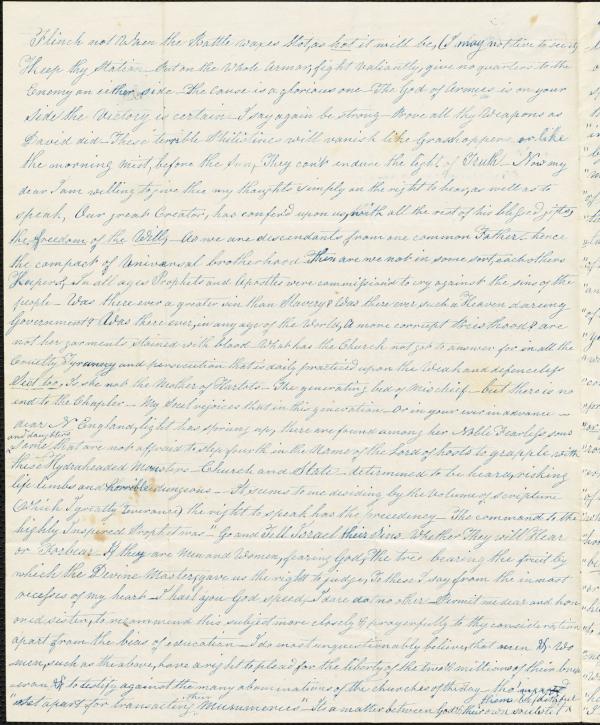 Flinch not When the Battle waxes Hot, as hot it will be, (I may not live to see it)
Keep thy Station – Put on the Whole Armor, fight valiantly, give no quarters to the
Enemy on either side – The cause is a glorious one – The God of Armies is on your
side the Victory is certain – I say again be strong – Prove all thy Weapons as
David did – These terrible Philistines will vanish like Grasshoppers, or like
the morning mist, before the Sun, They can't endure the light of Truth – Now my
dear I am willing to give thee my thoughts simply on the right to hear, as well as to
speak, Our great Creator, has confer'd upon us, with all the rest of his blessed gifts,
the freedom of the Will, – As we are descendants from one common Father – hence
the compact of Universal brotherhood then are we not in some sort, each others
Keepers, In all ages Prophets and Apostles were commission'd to cry against the sins of the
people – Was there ever a greater sin than Slavery & Was there ever such a Heaven daring
Government & Was there ever, in any age of the World, A more corrupt Priesthood & are
not her garments stained with blood What has the Church not got to answer for in all the
Cruelty, Tyranny and persecution that is daily practiced upon the Weak and defenceless
Sect too, Is she not the Mother of Harlots – The generating bed of Mischief – but there is no
end to the Chapter – My Soul rejoices that in this generation – or in your ever in advance –
dear N England, light has sprung up, there are found among her Noble Fearless sons
and daughters
some that are not affraid to step fourth in the Name of the Lord of hosts to grapple with
these Hydraheaded Monsters – Church and State – determined to be heard, risking
life limbs and horrible dungeons – It seems to me deciding by the Volume of scripture
(Which I greatly reverance) the right to speak has the precedency – The command to the
highly Inspired Prophet was "Go and Tell Israel their sins Whether They will Hear
or Forbear If they are Men and Women, fearing God, The tree bearing the fruit by
which the Devine Master, gave us the right to judge, To these I say from the in most
recesses of my heart – I hail you God speed, I dare do no other – Permit me dear and hon
or'd sister, to recommend this subject more closely & prayerfully to thy consideration
apart from the bias of education – I do most unquestionably believe, that men & Wo
men, such as the above, have a right to plead for the liberty of the two & millions of their
& to testify against the many abominations of the churches of the day tho'
apart transacting their Mummeries" Is a matter between God & their own souls